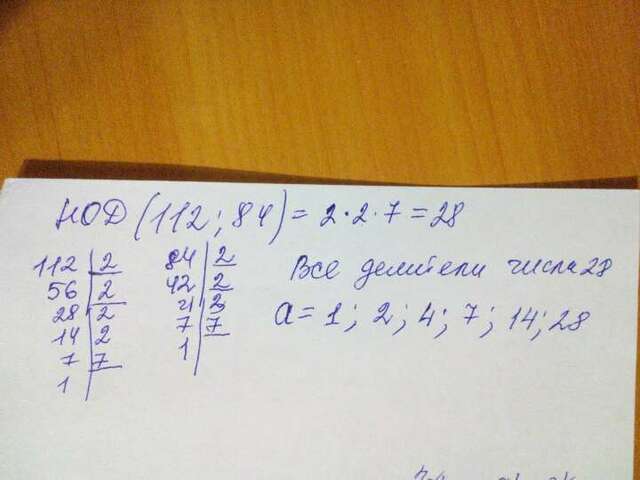 НОД (112; 84) = 2·2·7 = 28
112 | 2
56 | 2
28 | 2
14 | 2
7 | 7
1
84 | 2
42 | 2
21 | 3
7 | 7
1
Все делители числа 28
a = 1; 2; 4; 7; 14; 28